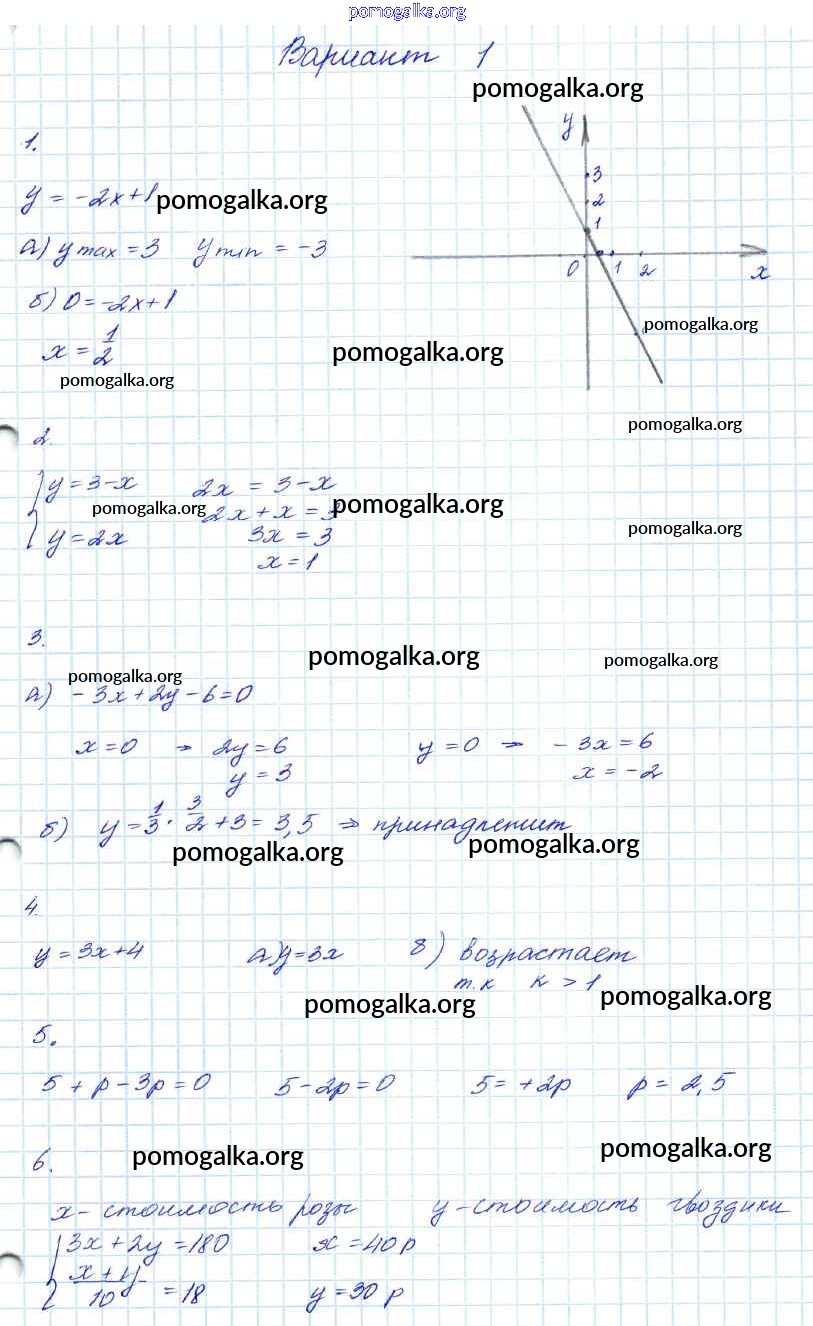 pomogalka.org
Вариант 1
pomogalka.org
1.
y
3
2
1
0 1 2 x
y = -2x+1 pomogalka.org
а) y max = 3 y min = -3
б) 0 = -2x+1
x = 1/2
pomogalka.org
pomogalka.org
pomogalka.org
pomogalka.org
2.
{ y = 3-x 2x = 3-x
pomogalka.org 2x + x = 3 pomogalka.org
y = 2x 3x = 3
pomogalka.org
x = 1
3.
pomogalka.org pomogalka.org
pomogalka.org
а) -3x+2y-6=0
x=0 → 2y=6 y=0 → -3x=6
y=3 x=-2
б) y = 1/3 · 3/2 + 3 = 3,5 ⇒ принадлежит
pomogalka.org pomogalka.org
4.
y = 3x+4 а) y=3x в) возрастает
т.к к > 1
pomogalka.org pomogalka.org
5.
5 + p - 3p = 0 5 - 2p = 0 5 = +2p p = 2,5
pomogalka.org pomogalka.org
6.
x - стоимость розы y - стоимость гвоздики
{ 3x + 2y = 180 x = 40 р
(x + y)/10 = 18 y = 30 р